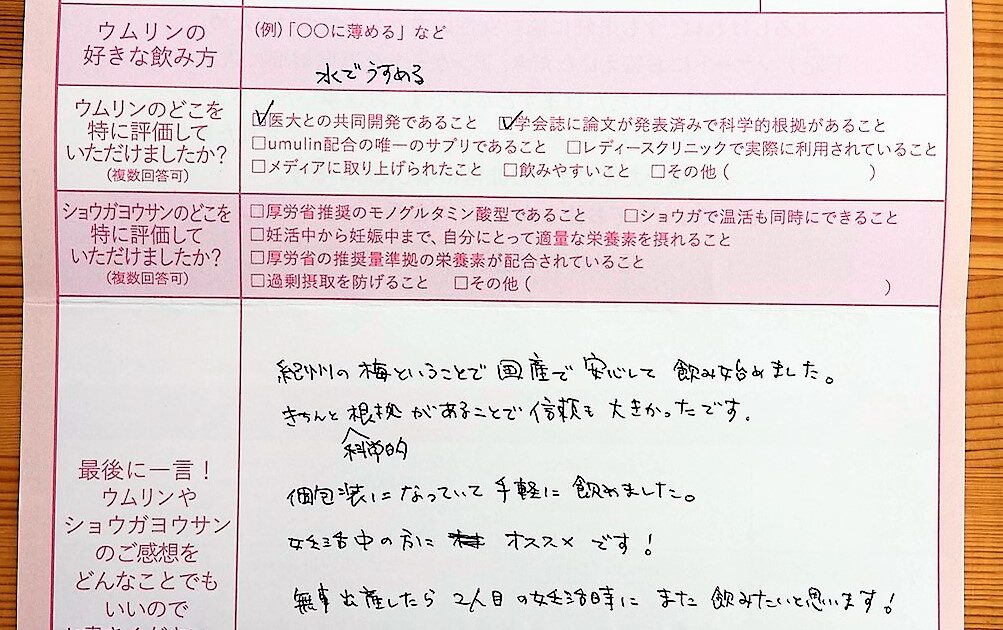 ウムリンの
好きな飲み方
(例)「〇〇に薄める」など
水でうすめる
ウムリンのどこを
特に評価して
いただけましたか?
(複数回答可)
☑医大との共同開発であること ☑学会誌に論文が発表済みで科学的根拠があること
□umulin配合の唯一のサプリであること □レディースクリニックで実際に利用されていること
□メディアに取り上げられたこと □飲みやすいこと □その他( )
ショウガヨウサンのどこを
特に評価して
いただけましたか?
(複数回答可)
□厚労省推奨のモノグルタミン酸型であること □ショウガで温活も同時にできること
□妊活中から妊娠中まで、自分にとって適量な栄養素を摂れること
□厚労省の推奨量準拠の栄養素が配合されていること
□過剰摂取を防げること □その他( )
最後に一言!
ウムリンや
ショウガヨウサン
のご感想を
どんなことでも
いいので
紀州の梅ということで国産で安心して飲み始めました。
きちんと根拠があることで信頼も大きかったです。
科学的
個包装になっていて手軽に飲めました。
妊活中の方に オススメです!
無事出産したら2人目の妊活時にまた飲みたいと思います!